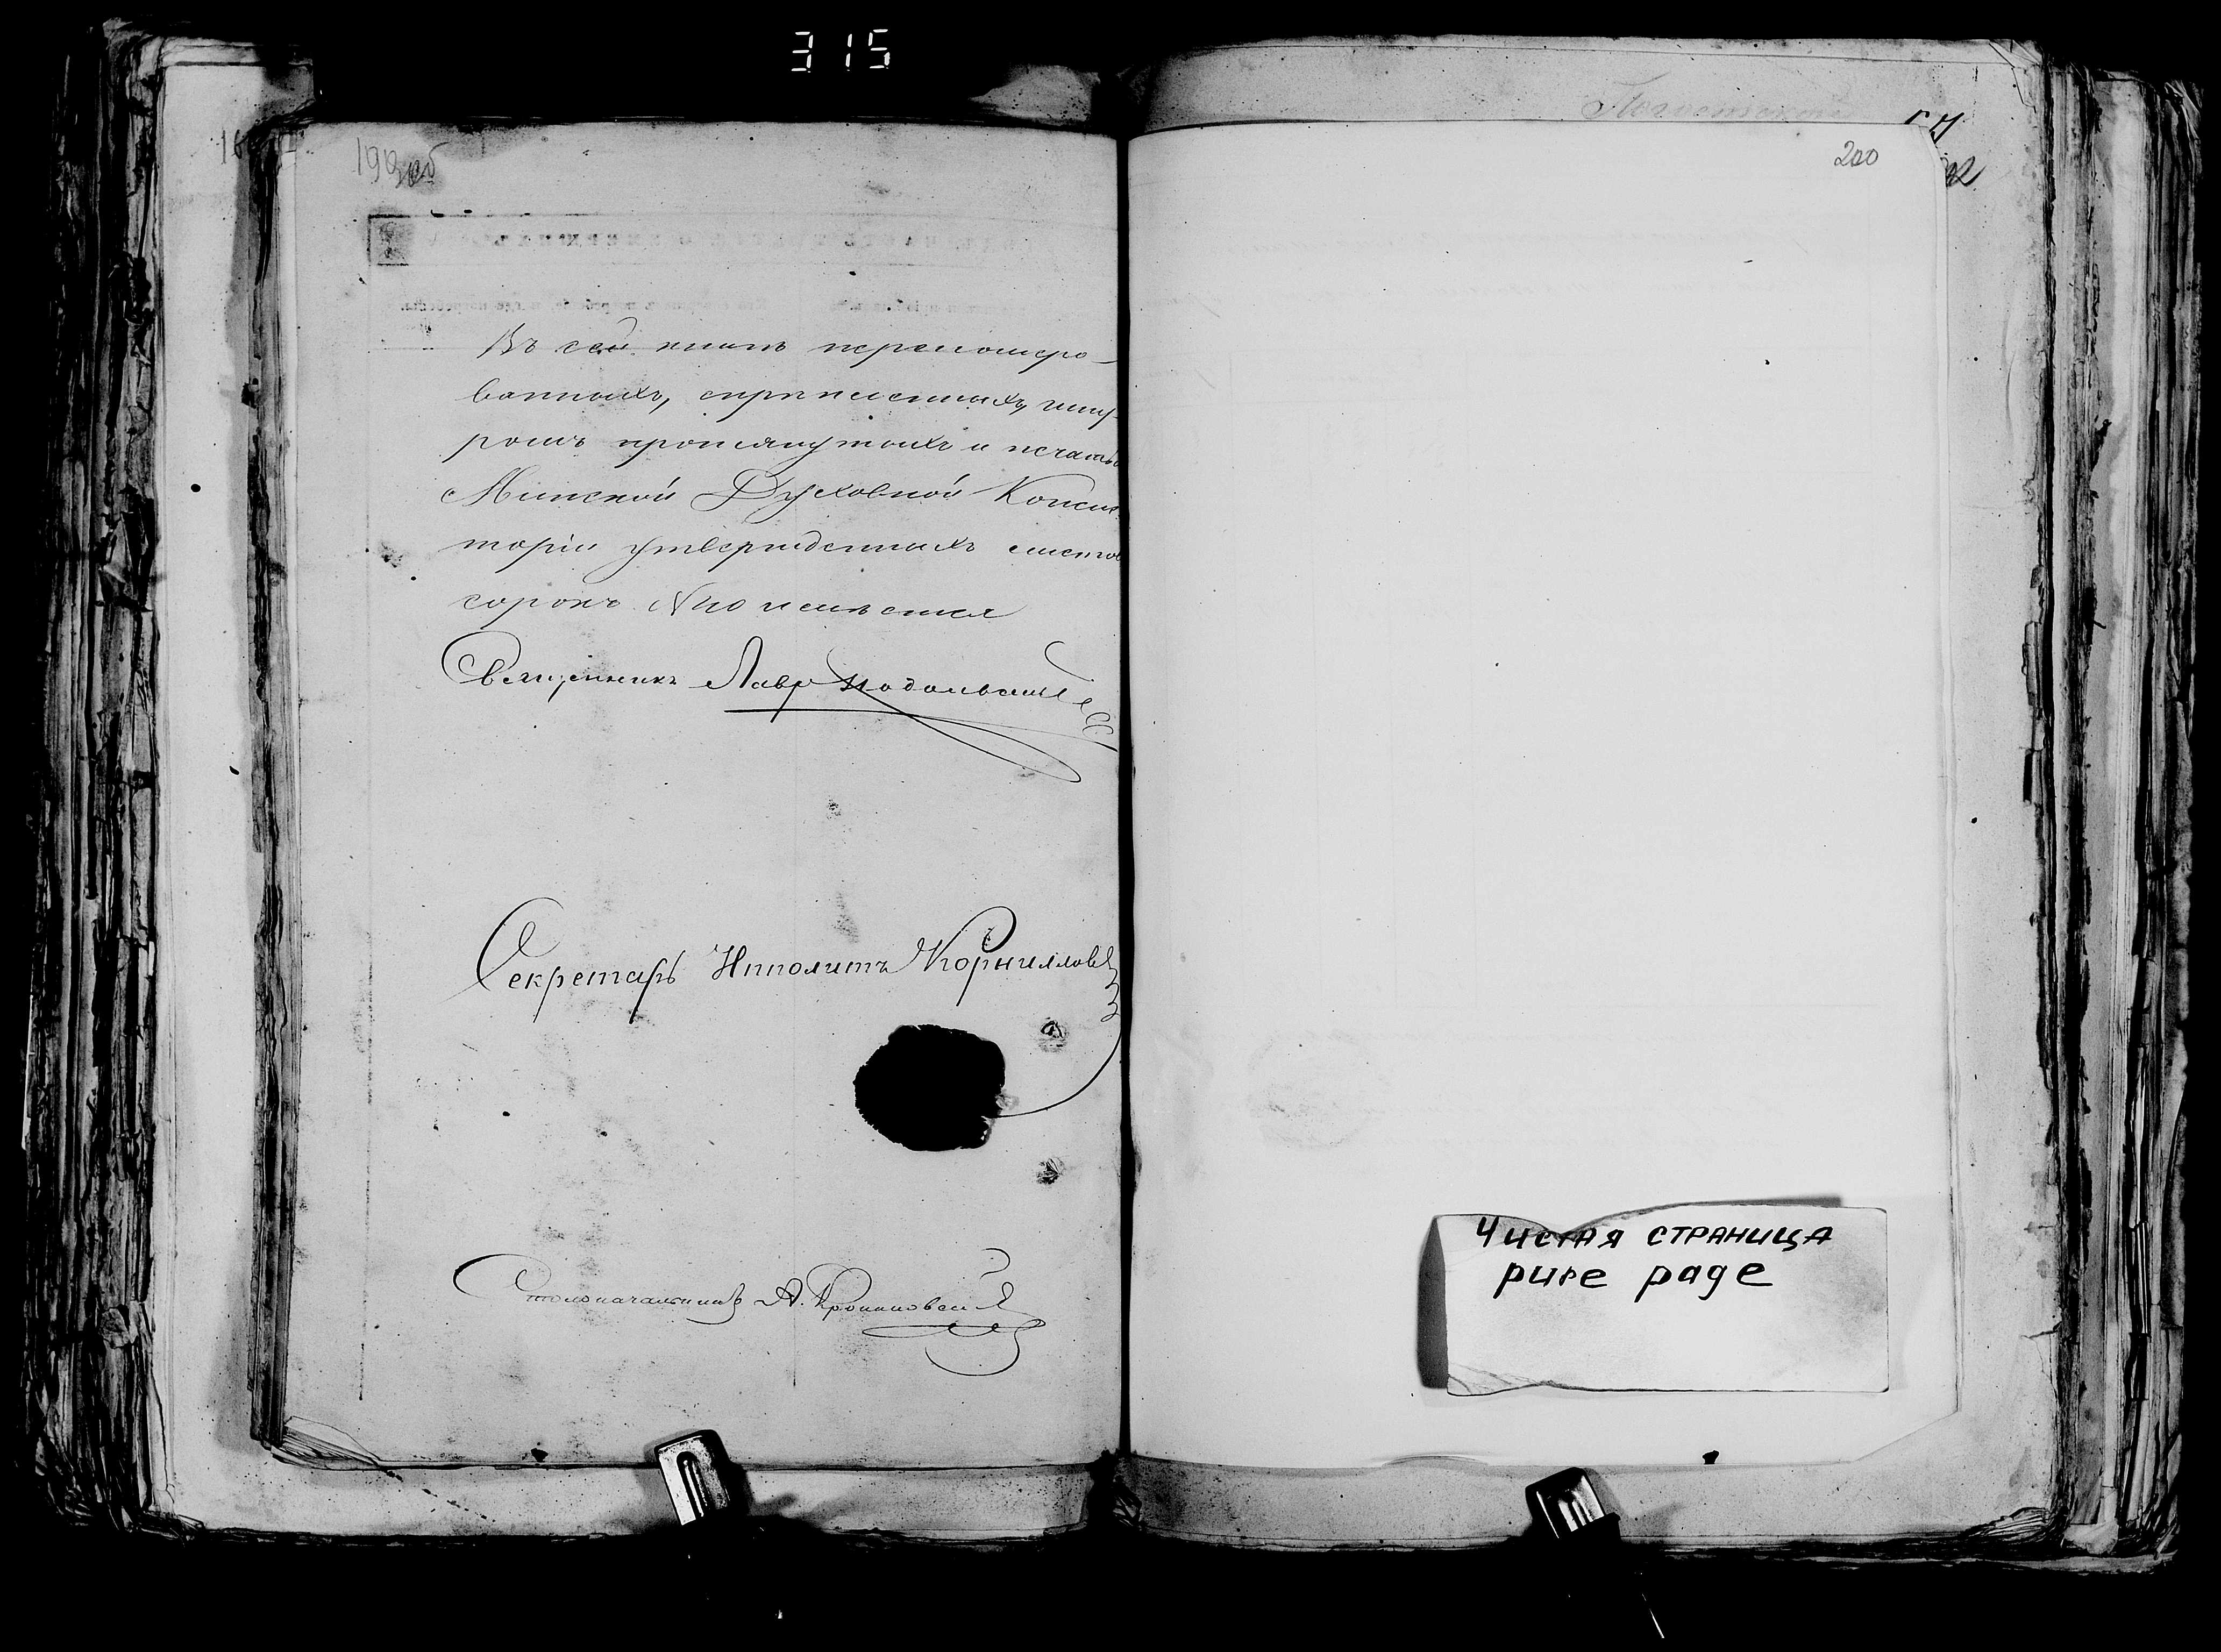 315
199об
200
Въ сей книгѣ перенумеро-
ванныхъ, скрѣпленныхъ, шну-
ромъ протянутыхъ и печатью
Минской Духовной Консис-
торіи утвержденныхъ листов
сорокъ №40 имѣется
Священникъ Лавр Подольскій
Секретарь Ипполитъ Корниллов
Столоначальникъ А.
Чистая страница
pure page